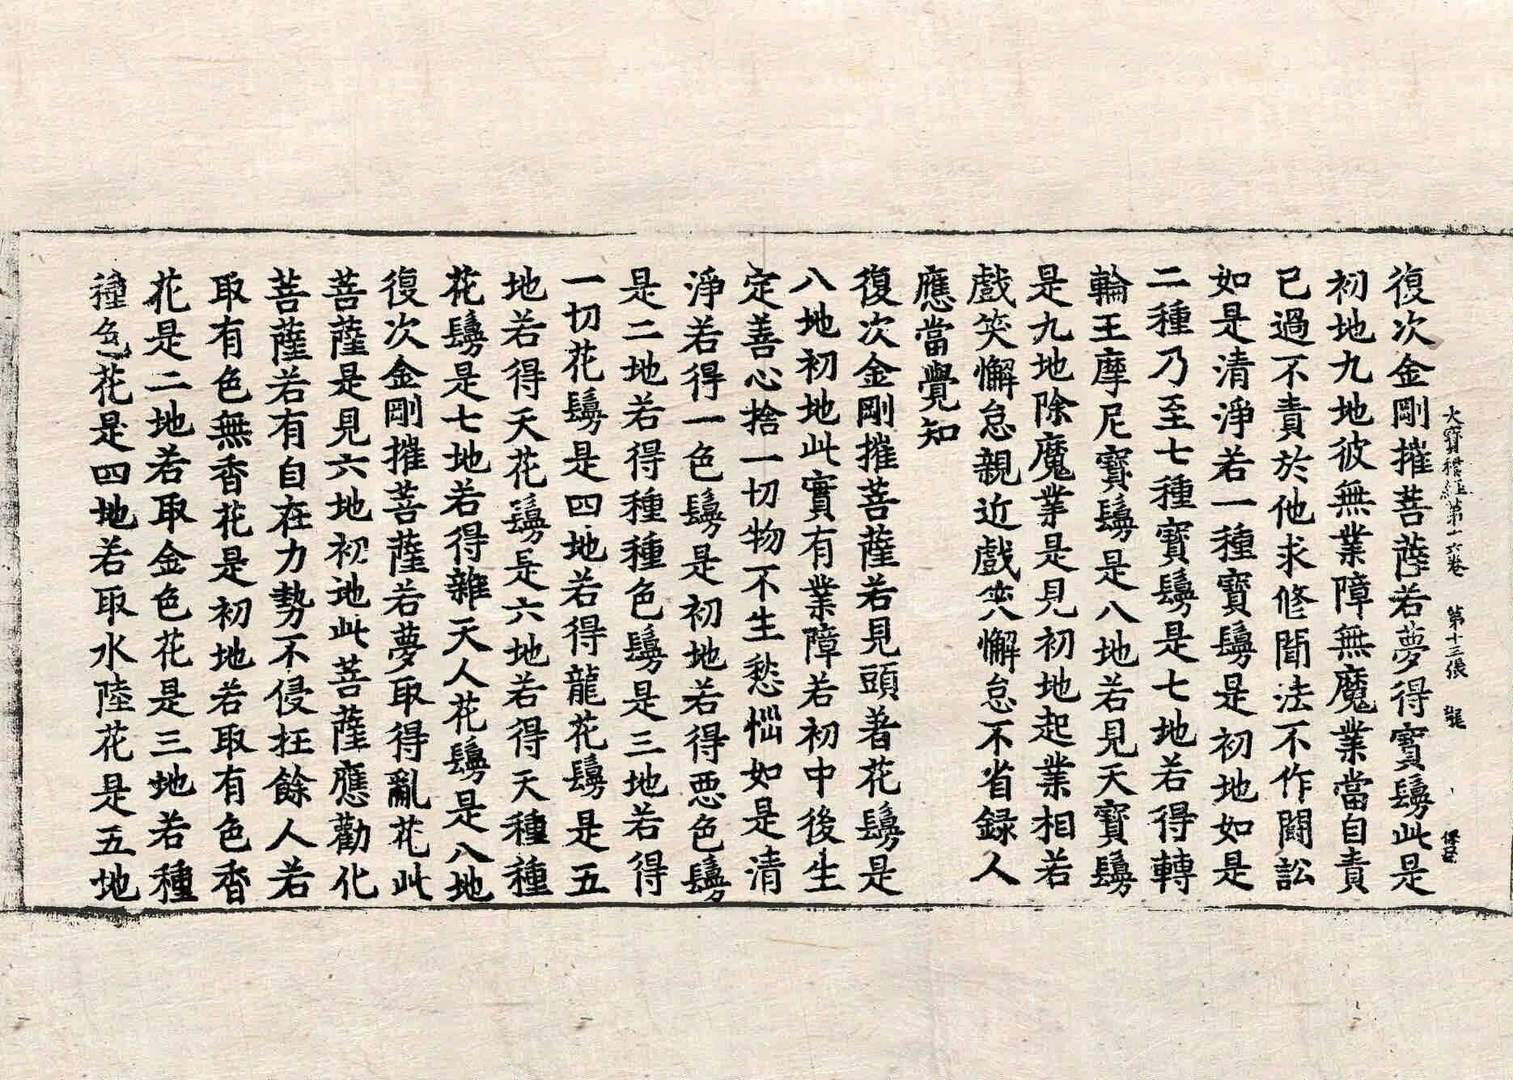 大寶積經第十六卷 第十三張 龍
復次金剛摧菩薩若夢得寶鬘此是
初地九地彼無業障無魔業當自責
已過不責於他求修聞法不作鬪訟
如是清淨若一種寶鬘是初地如是
二種乃至七種寶鬘是七地若得轉
輪王摩尼寶鬘是八地若見天寶鬘
是九地除魔業是見初地起業相若
戲笑懈怠親近戲笑懈怠不省録人
應當覺知
復次金剛摧菩薩若見頭著花鬘是
八地初地此實有業障若初中後生
定善心捨一切物不生愁惱如是清
淨若得一色鬘是初地若得惡色鬘
是二地若得種種色鬘是三地若得
一切花鬘是四地若得龍花鬘是五
地若得天花鬘是六地若得天種種
花鬘是七地若得雜天人花鬘是八地
復次金剛摧菩薩若夢取得亂花此
菩薩是見六地初地此菩薩應勸化
菩薩若有自在力勢不侵抂餘人若
取有色無香花是初地若取有色香
花是二地若取金色花是三地若種
種色花是四地若取水陸花是五地